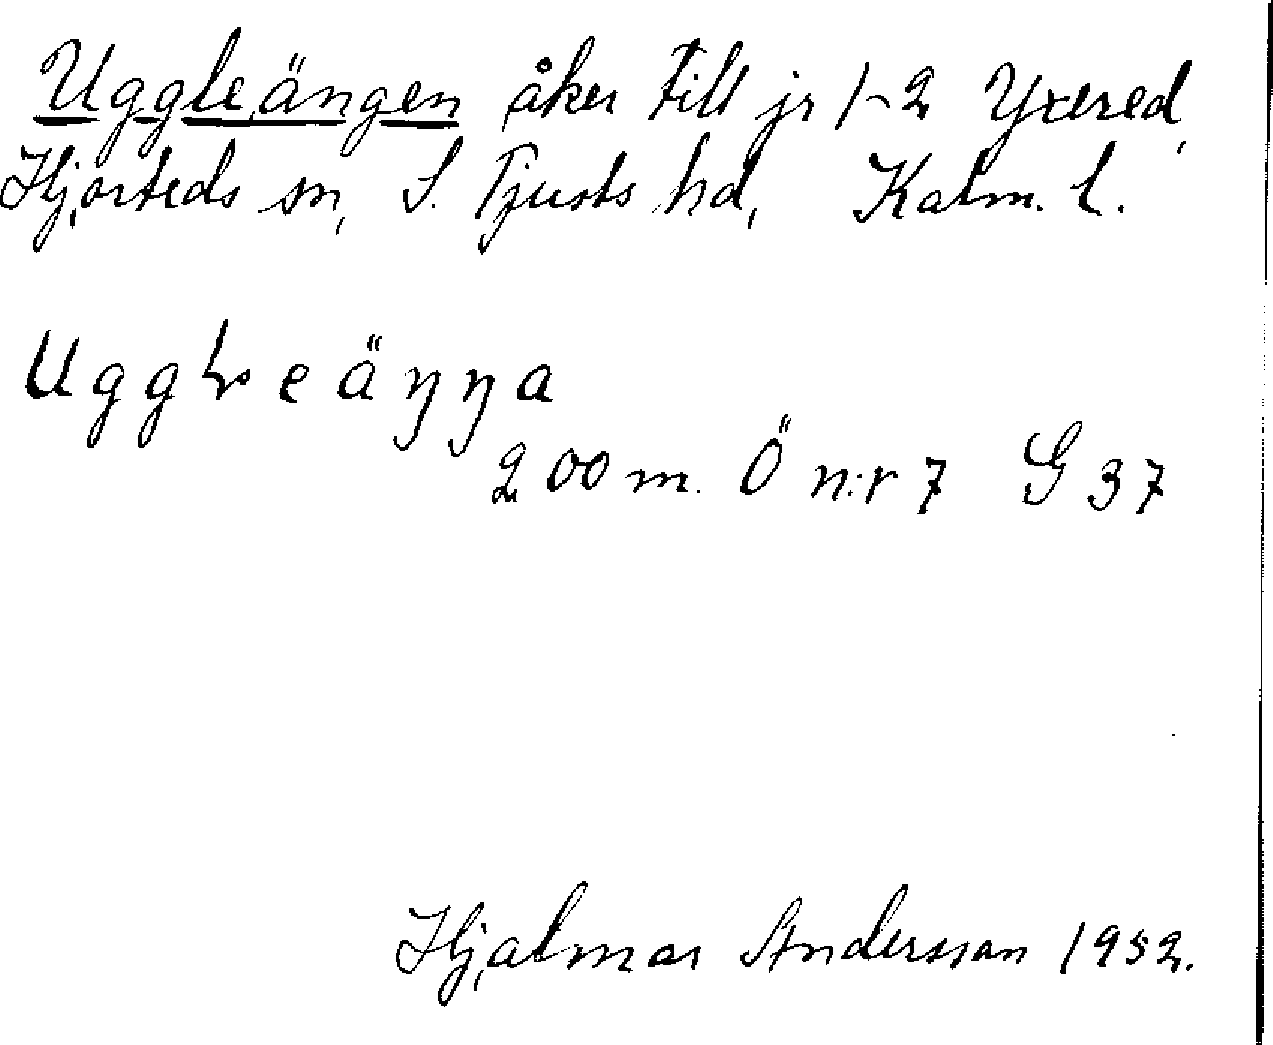 Uggleängen åker till jr 1-2 Yxered,
Hjorteds sn, S. Tjusts hd, Kalm. l.
Ugg e äŋŋa
200 m. Ö n:r 7 G 37
Hjalmar Andersson 1952.